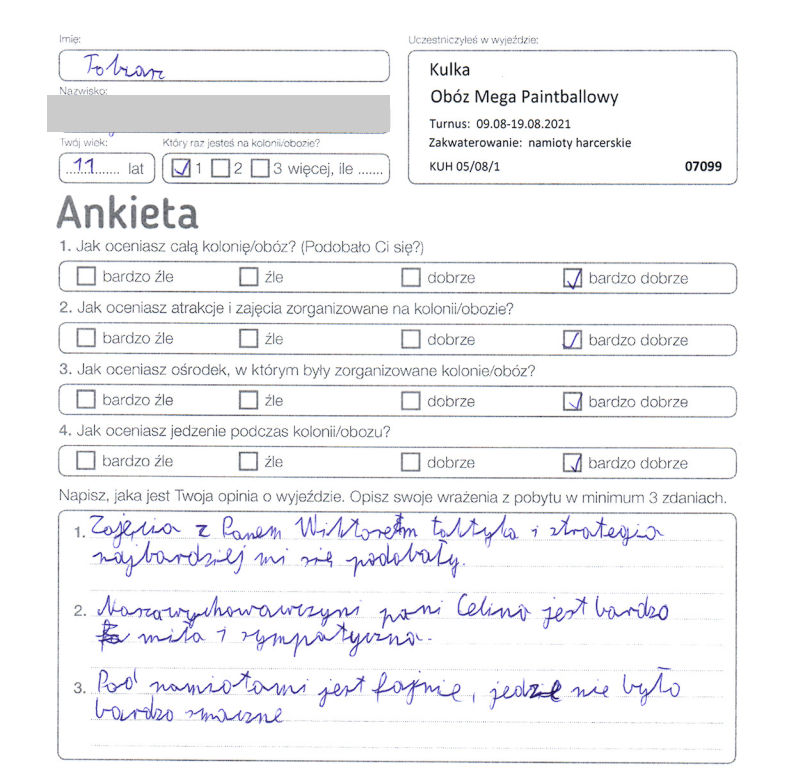 Imię:
Tobiasz
Nazwisko:
Twój wiek:
11 lat
Który raz jesteś na kolonii/obozie?
1 2 3 więcej, ile .......
Uczestniczyłeś w wyjeździe:
Kulka
Obóz Mega Paintballowy
Turnus: 09.08-19.08.2021
Zakwaterowanie: namioty harcerskie
KUH 05/08/1 07099
Ankieta
1. Jak oceniasz całą kolonię/obóz? (Podobało Ci się?)
bardzo źle źle dobrze bardzo dobrze
2. Jak oceniasz atrakcje i zajęcia zorganizowane na kolonii/obozie?
bardzo źle źle dobrze bardzo dobrze
3. Jak oceniasz ośrodek, w którym były zorganizowane kolonie/obóz?
bardzo źle źle dobrze bardzo dobrze
4. Jak oceniasz jedzenie podczas kolonii/obozu?
bardzo źle źle dobrze bardzo dobrze
Napisz, jaka jest Twoja opinia o wyjeździe. Opisz swoje wrażenia z pobytu w minimum 3 zdaniach.
1. Zajęcia z Panem Wiktorem taktyka i strategia
najbardziej mi się podobały.
2. Nasza wychowawczyni pani Celina jest bardzo
miła i sympatyczna.
3. Pod namiotami jest fajnie, jedzenie nie było
bardzo smaczne